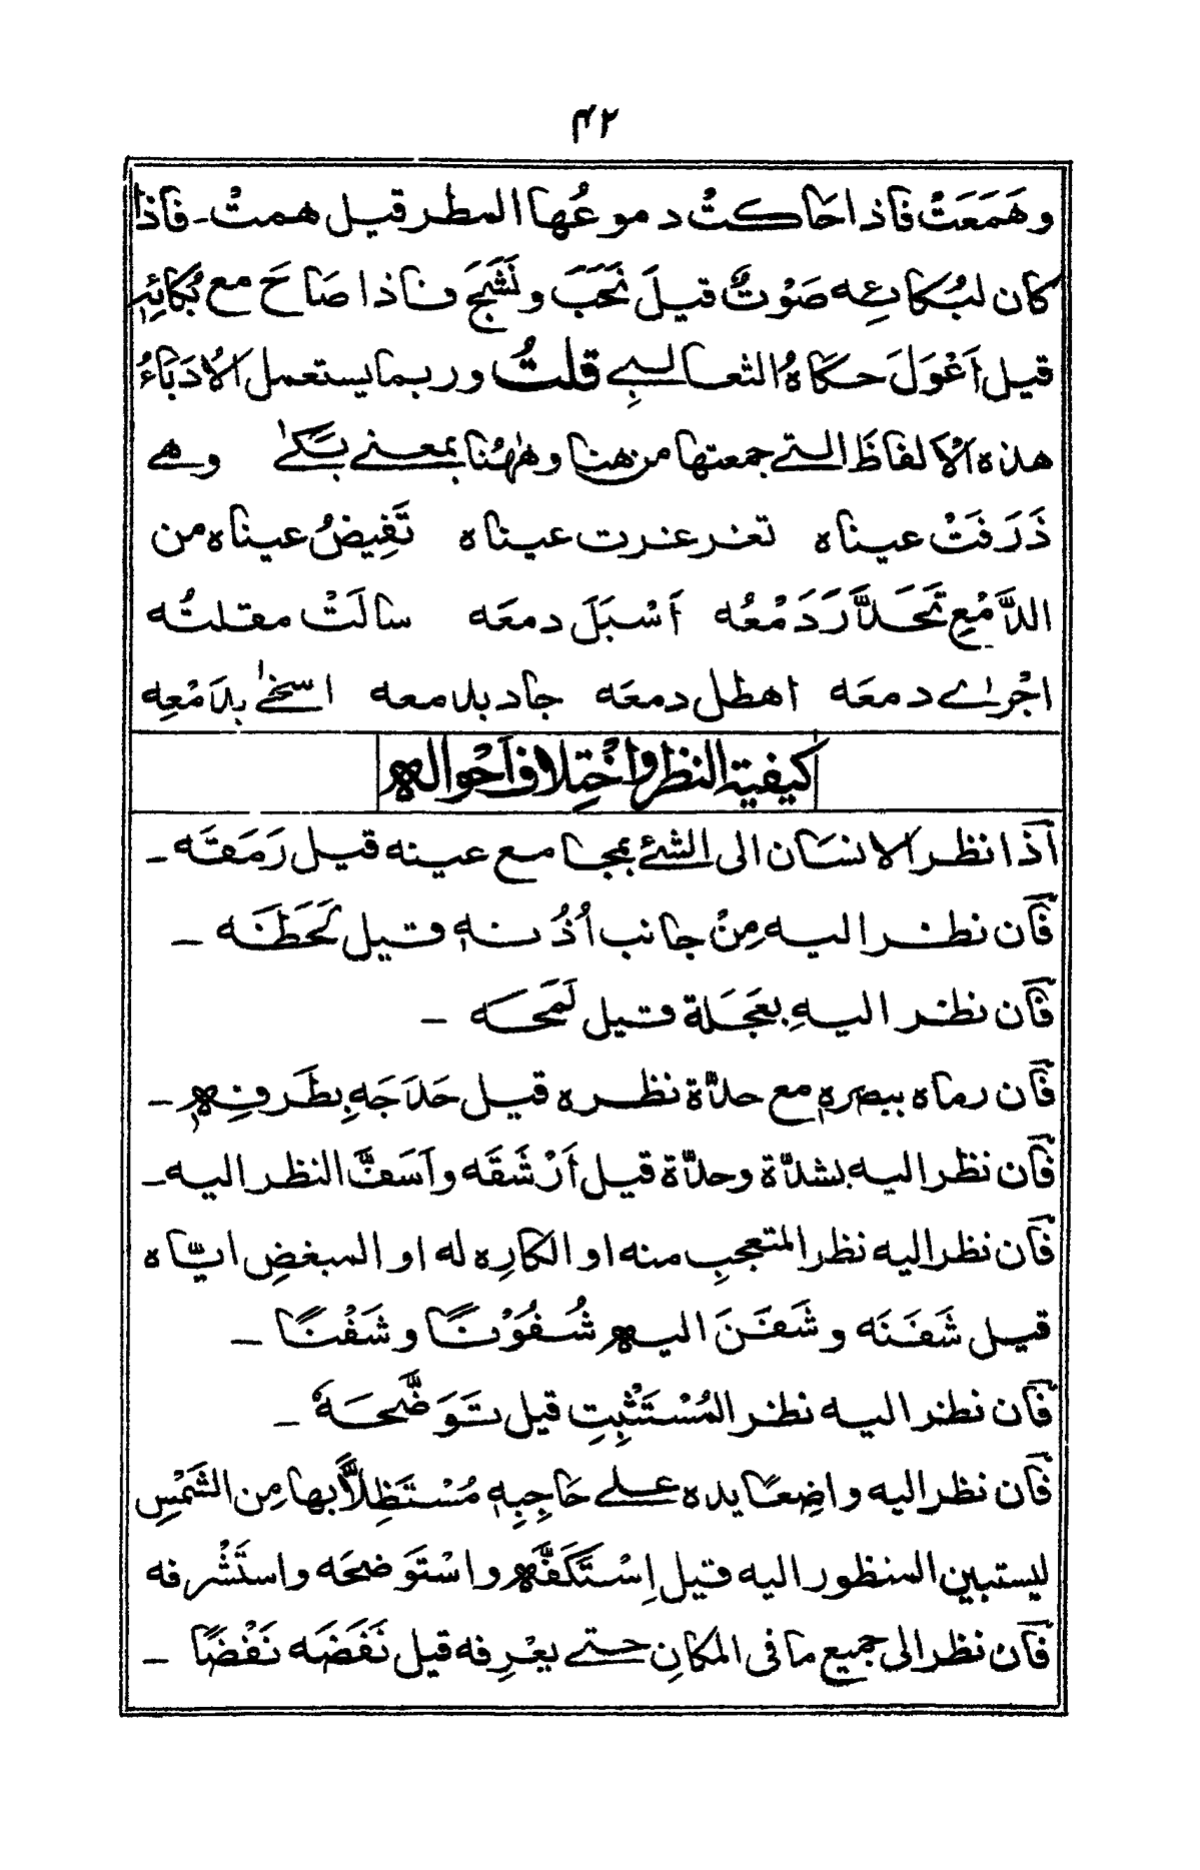 ٤٢
وهَمَعَتْ فاذا حَاكتْ دموعُها المطر قيل همتْ۔ فاذا
كان لبُكائِه صَوْتٌ قيلَ نَحَبَ ونَشَجَ فاذا صَاحَ مع بُكائِهٖ
قيل اَعْوَلَ حكاهُ الثعالبِي قلتُ وربما يستعمل الاُدَبَاءُ
هذه الاَلفاظَ التی جمعتها من هنا وهٰهُنا بمعنی بَكىٰ وهی
ذَرَفَتْ عيناه تغرغرت عيناه تَفِيضُ عيناه من
الدَّمْعِ تَحَدَّرَ دَمْعُه اَسْبَلَ دمعَه سالَتْ مقلتُه
اجْرٰی دمعَه اهطل دمعَه جاد بدمعه اسخىٰ بِدَمْعِه
كيفية النظر واخْتِلاف اَحْوالهٖ
اذا نظر الانسَان الی الشئ بمجامع عينه قيل رَمَقَه ۔
فان نظر اليه مِنْ جانب اُذُنهٖ قيل لَحَظَه ۔
فان نظر اليهِ بعَجَلة قيل لَمَحَه ۔
فان رماه ببصرهٖ مع حدّة نظره قيل حَدَجَهٖ بِطَرفِهٖ ۔
فان نظر اليه بشدّة وحدّة قيل اَرْشَقَه واَسَفَّ النظر اليه۔
فان نظر اليه نظر المتعجبِ منه او الكارِه له او المبغضِ ايّاه
قيل شَفَنَه وشَفَنَ اليهٖ شُفُوْنًا وشَفْنًا ۔
فان نظر اليه نظر المُسْتَثْبِتِ قيل تَوَضَّحَهٗ ۔
فان نظر اليه واضِعًا يده علی حَاجِبِهٖ مُسْتَظِلًّا بها مِن الشَمْسِ
ليستبين المنظور اليه قيل اِسْتَكَفَّهٗ واسْتَوضحَه واستَشْرفه
فان نظر الی جميع ما فی المكانِ حتی يعْرِفه قيل نَفَضَه نَفْضًا ۔